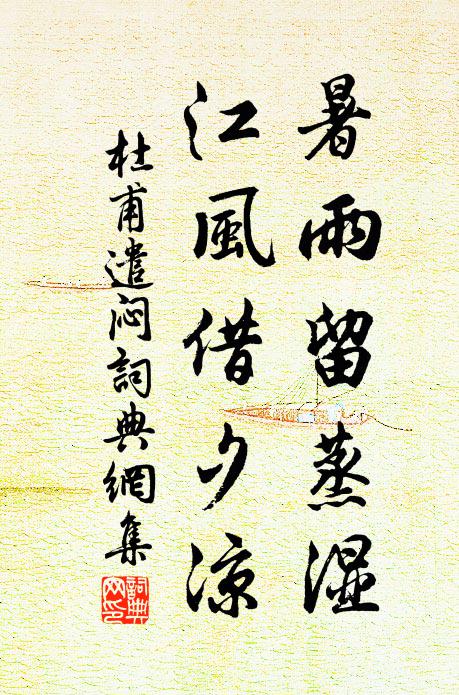 暑雨留蒸湿
江風借夕凉
杜甫遣闷詞典網集
詞典
网印